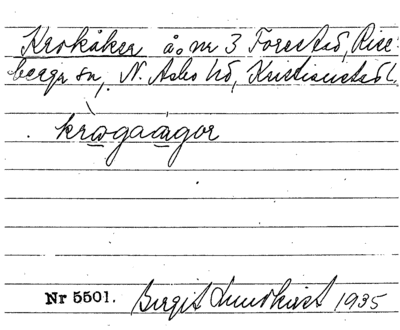 Krokåker å. nr 3 Forestad, Rise-
berga sn, N. Asbo hd, Kristianstad l.
. kràgaågor
Nr 5501. Birgit Lundkvist 1935